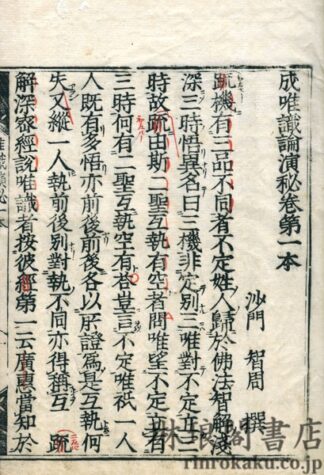 成唯識論演秘卷第一本
沙門 智周 撰
疏機有三品不同者不定姓人歸於佛法智解淺
深三時悟異名曰三機非定別三唯對不定立三
時故疏由斯二聖互執空有者問唯望不定立有
三時何有二聖互執空有答豈言不定唯祇一人
人既有多悟亦前後前後各以所證為是互執何
失又縱一人執前後別對執不同亦得稱互 疏
解深密經說唯識者按彼經第一云廣惠當知於
琳琅閣書店
rinrokaku.co.jp